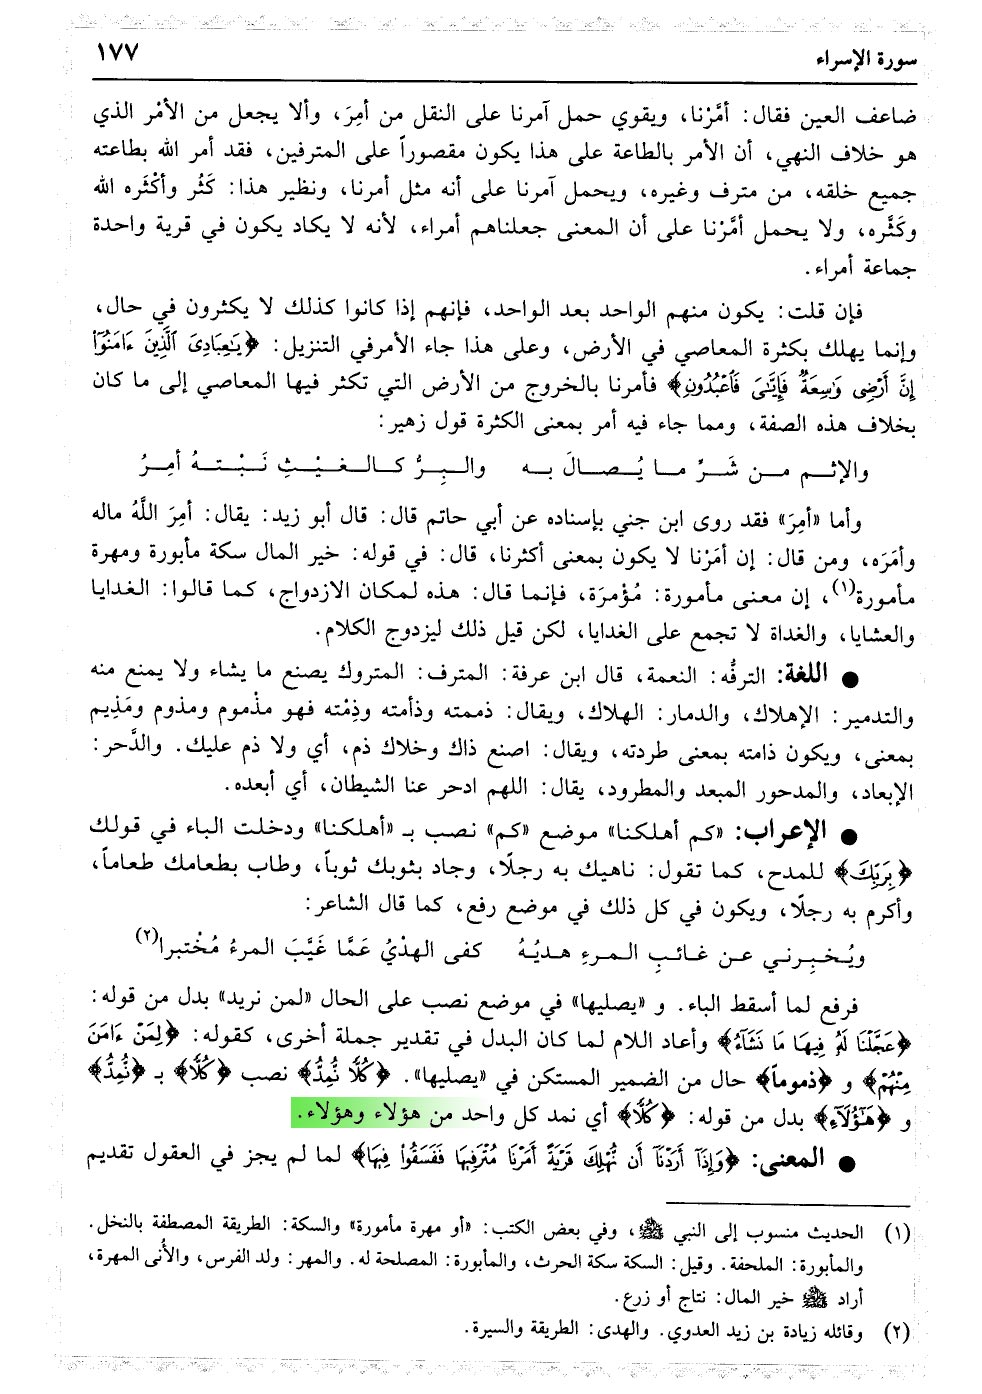 سورة الإسراء
١٧٧
ضاعف العين فقال: أمَّرْنا، ويقوي حمل آمرنا على النقل من أمِرَ، وألا يجعل من الأمْر الذي
هو خلاف النهي، أن الأمر بالطاعة على هذا يكون مقصوراً على المترفين، فقد أمر الله بطاعته
جميع خلقه، من مترف وغيره، ويحمل آمرنا على أنه مثل أمرنا، ونظير هذا: كَثُر وأكْثَره الله
وكَثَّره، ولا يحمل أمَّرْنا على أن المعنى جعلناهم أمراء، لأنه لا يكاد يكون في قرية واحدة
جماعة أمراء.
فإن قلت: يكون منهم الواحد بعد الواحد، فإنهم إذا كانوا كذلك لا يكثرون في حال،
وإنما يهلك بكثرة المعاصي في الأرض، وعلى هذا جاء الأمرفي التنزيل: ﴿يَٰعِبَادِىَ ٱلَّذِينَ ءَامَنُوٓا۟
إِنَّ أَرْضِى وَٰسِعَةٌ فَإِيَّٰىَ فَٱعْبُدُونِ﴾ فأمرنا بالخروج من الأرض التي تكثر فيها المعاصي إلى ما كان
بخلاف هذه الصفة، ومما جاء فيه أمر بمعنى الكثرة قول زهير:
والإثـم مـن شَـرِّ مـا يُـصـالَ بـه والـبِـرُّ كـالـغَـيْـثِ نَـبْـتـهُ أمِـرُ
وأما «أمِرَ» فقد روى ابن جني بإسناده عن أبي حاتم قال: قال أبو زيد: يقال: أمِرَ اللَّهُ ماله
وأمَرَه، ومن قال: إن أمَرْنا لا يكون بمعنى أكثرنا، قال: في قوله: خير المال سكة مأبورة ومهرة
مأمورة(١)، إن معنى مأمورة: مُؤْمرَة، فإنما قال: هذه لمكان الازدواج، كما قالوا: الغدايا
والعشايا، والغداة لا تجمع على الغدايا، لكن قيل ذلك ليزدوج الكلام.
● اللغة: الترفُّه: النعمة، قال ابن عرفة: المترف: المتروك يصنع ما يشاء ولا يمنع منه
والتدمير: الإهلاك، والدمار: الهلاك، ويقال: ذممته وذأمته وذِمْته فهو مذْموم ومذوم ومَذِيم
بمعنى، ويكون ذامته بمعنى طردته، ويقال: اصنع ذاك وخلاك ذم، أي ولا ذم عليك. والدَّحر:
الإبعاد، والمدحور المبعد والمطرود، يقال: اللهم ادحر عنا الشيطان، أي أبعده.
● الإعراب: «كم أهلكنا» موضع «كم» نصب بـ «أهلكنا» ودخلت الباء في قولك
﴿بِرَبِّكَ﴾ للمدح، كما تقول: ناهيك به رجلًا، وجاد بثوبك ثوباً، وطاب بطعامك طعاماً،
وأكرم به رجلًا، ويكون في كل ذلك في موضع رفع، كما قال الشاعر:
ويُـخـبِـرنـي عـن غـائـبِ الـمـرءِ هـديُـهُ كفى الهدْيُ عَمَّا غَيَّبَ المرءُ مُخْتبرا(٢)
فرفع لما أسقط الباء. و «يصليها» في موضع نصب على الحال «لمن نريد» بدل من قوله:
﴿عَجَّلْنَا لَهُۥ فِيهَا مَا نَشَآءُ﴾ وأعاد اللام لما كان البدل في تقدير جملة أخرى، كقوله: ﴿لِمَنْ ءَامَنَ
مِنْهُمْ﴾ و ﴿ذموماً﴾ حال من الضمير المستكن في «يصليها». ﴿كُلًّا نُّمِدُّ﴾ نصب ﴿كُلًّا﴾ بـ ﴿نُّمِدُّ﴾
و ﴿هَٰٓؤُلَآءِ﴾ بدل من قوله: ﴿كُلًّا﴾ أي نمد كل واحد من هؤلاء وهؤلاء.
● المعنى: ﴿وَإِذَآ أَرَدْنَآ أَن نُّهْلِكَ قَرْيَةً أَمَرْنَا مُتْرَفِيهَا فَفَسَقُوا۟ فِيهَا﴾ لما لم يجز في العقول تقديم
(١) الحديث منسوب إلى النبي ﷺ، وفي بعض الكتب: «أو مهرة مأمورة» والسكة: الطريقة المصطفة بالنخل.
والمأبورة: الملحفة. وقيل: السكة سكة الحرث، والمأبورة: المصلحة له. والمهر: ولد الفرس، والأُنى المهرة،
أراد ﷺ خير المال: نتاج أو زرع.
(٢) وقائله زيادة بن زيد العدوي. والهدى: الطريقة والسيرة.